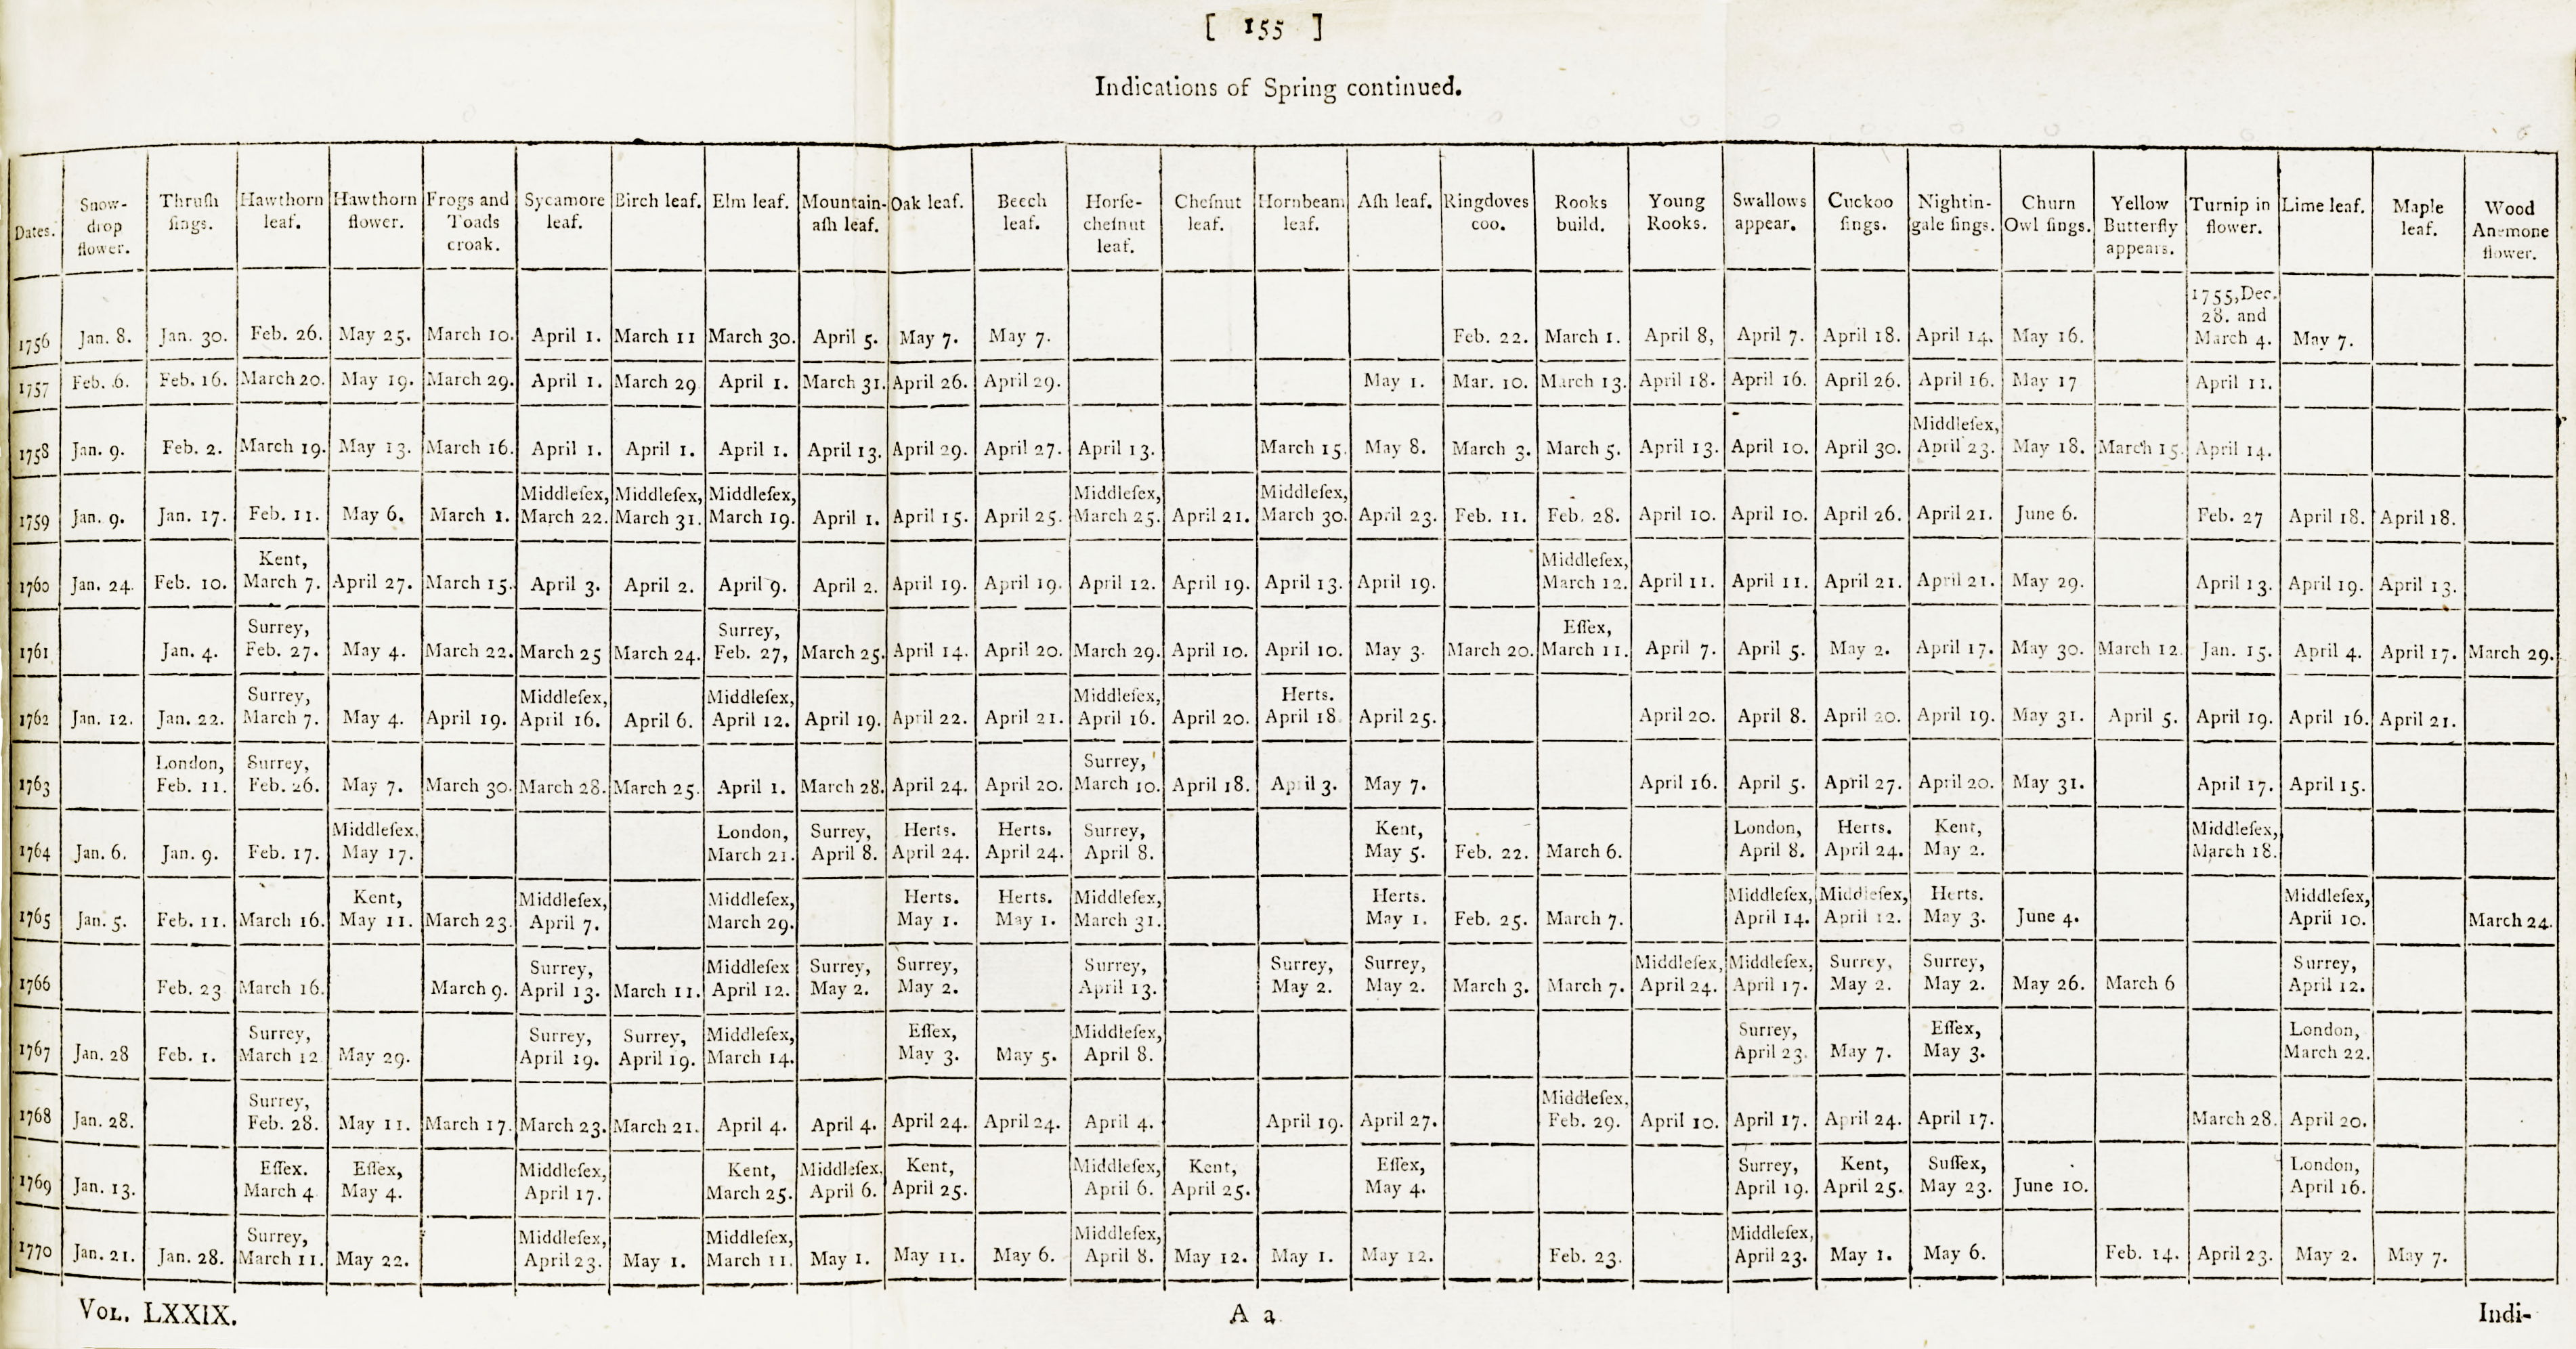 [ 155 ]
Indications of Spring continued.
Dates. | Snow-drop flower. | Thruſh ſings. | Hawthorn leaf. | Hawthorn flower. | Frogs and Toads croak. | Sycamore leaf. | Birch leaf. | Elm leaf. | Mountain-aſh leaf. | Oak leaf. | Beech leaf. | Horſe-cheſnut leaf. | Cheſnut leaf. | Hornbeam leaf. | Aſh leaf. | Ringdoves coo. | Rooks build. | Young Rooks. | Swallows appear. | Cuckoo ſings. | Nightin-gale ſings. | Churn Owl ſings. | Yellow Butterfly appears. | Turnip in flower. | Lime leaf. | Maple leaf. | Wood Anemone flower.
1756 | Jan. 8. | Jan. 30. | Feb. 26. | May 25. | March 10. | April 1. | March 11 | March 30. | April 5. | May 7. | May 7. | | | | | Feb. 22. | March 1. | April 8, | April 7. | April 18. | April 14. | May 16. | | 1755, Dec. 28. and March 4. | May 7. | |
1757 | Feb. 6. | Feb. 16. | March 20. | May 19. | March 29. | April 1. | March 29 | April 1. | March 31. | April 26. | April 29. | | | | May 1. | Mar. 10. | March 13. | April 18. | April 16. | April 26. | April 16. | May 17 | | April 11. | | |
1758 | Jan. 9. | Feb. 2. | March 19. | May 13. | March 16. | April 1. | April 1. | April 1. | April 13. | April 29. | April 27. | April 13. | | March 15. | May 8. | March 3. | March 5. | April 13. | April 10. | April 30. | Middleſex, April 23. | May 18. | March 15. | April 14. | | |
1759 | Jan. 9. | Jan. 17. | Feb. 11. | May 6. | March 1. | Middleſex, March 22. | Middleſex, March 31. | Middleſex, March 19. | April 1. | April 15. | April 25. | Middleſex, March 25. | April 21. | Middleſex, March 30. | April 23. | Feb. 11. | Feb. 28. | April 10. | April 10. | April 26. | April 21. | June 6. | | Feb. 27 | April 18. | April 18. |
1760 | Jan. 24. | Feb. 10. | Kent, March 7. | April 27. | March 15. | April 3. | April 2. | April 9. | April 2. | April 19. | April 19. | April 12. | April 19. | April 13. | April 19. | | Middleſex, March 12. | April 11. | April 11. | April 21. | April 21. | May 29. | | April 13. | April 19. | April 13. |
1761 | | Jan. 4. | Surrey, Feb. 27. | May 4. | March 22. | March 25 | March 24. | Surrey, Feb. 27, | March 25. | April 14. | April 20. | March 29. | April 10. | April 10. | May 3. | March 20. | Eſſex, March 11. | April 7. | April 5. | May 2. | April 17. | May 30. | March 12 | Jan. 15. | April 4. | April 17. | March 29.
1762 | Jan. 12. | Jan. 22. | Surrey, March 7. | May 4. | April 19. | Middleſex, April 16. | April 6. | Middleſex, April 12. | April 19. | April 22. | April 21. | Middleſex, April 16. | April 20. | Herts. April 18. | April 25. | | | April 20. | April 8. | April 20. | April 19. | May 31. | April 5. | April 19. | April 16. | April 21. |
1763 | | London, Feb. 11. | Surrey, Feb. 26. | May 7. | March 30. | March 28. | March 25. | April 1. | March 28. | April 24. | April 20. | Surrey, March 10. | April 18. | April 3. | May 7. | | | April 16. | April 5. | April 27. | April 20. | May 31. | | April 17. | April 15. | |
1764 | Jan. 6. | Jan. 9. | Feb. 17. | Middleſex, May 17. | | | | London, March 21. | Surrey, April 8. | Herts. April 24. | Herts. April 24. | Surrey, April 8. | | | Kent, May 5. | Feb. 22. | March 6. | | London, April 8. | Herts. April 24. | Kent, May 2. | | | Middleſex, March 18. | | |
1765 | Jan. 5. | Feb. 11. | March 16. | Kent, May 11. | March 23. | Middleſex, April 7. | | Middleſex, March 29. | | Herts. May 1. | Herts. May 1. | Middleſex, March 31. | | | Herts. May 1. | Feb. 25. | March 7. | | Middleſex, April 14. | Middleſex, April 12. | Herts. May 3. | June 4. | | | Middleſex, April 10. | | March 24.
1766 | | Feb. 23 | March 16. | | March 9. | Surrey, April 13. | March 11. | Middleſex April 12. | Surrey, May 2. | Surrey, May 2. | | Surrey, April 13. | | Surrey, May 2. | Surrey, May 2. | March 3. | March 7. | Middleſex, April 24. | Middleſex, April 17. | Surrey, May 2. | Surrey, May 2. | May 26. | March 6 | | Surrey, April 12. | |
1767 | Jan. 28 | Feb. 1. | Surrey, March 12 | May 29. | | Surrey, April 19. | Surrey, April 19. | Middleſex, March 14. | | Eſſex, May 3. | May 5. | Middleſex, April 8. | | | | | | | Surrey, April 23. | May 7. | Eſſex, May 3. | | | | London, March 22. | |
1768 | Jan. 28. | | Surrey, Feb. 28. | May 11. | March 17. | March 23. | March 21. | April 4. | April 4. | April 24. | April 24. | April 4. | | April 19. | April 27. | | Middleſex, Feb. 29. | April 10. | April 17. | April 24. | April 17. | | | March 28. | April 20. | |
1769 | Jan. 13. | | Eſſex. March 4 | Eſſex, May 4. | | Middleſex, April 17. | | Kent, March 25. | Middleſex, April 6. | Kent, April 25. | | Middleſex, April 6. | Kent, April 25. | | Eſſex, May 4. | | | | Surrey, April 19. | Kent, April 25. | Suſſex, May 23. | June 10. | | | London, April 16. | |
1770 | Jan. 21. | Jan. 28. | Surrey, March 11. | May 22. | | Middleſex, April 23. | May 1. | Middleſex, March 11. | May 1. | May 11. | May 6. | Middleſex, April 8. | May 12. | May 1. | May 12. | | Feb. 23. | | Middleſex, April 23. | May 1. | May 6. | | Feb. 14. | April 23. | May 2. | May 7. |
VOL. LXXIX.
A a
Indi-